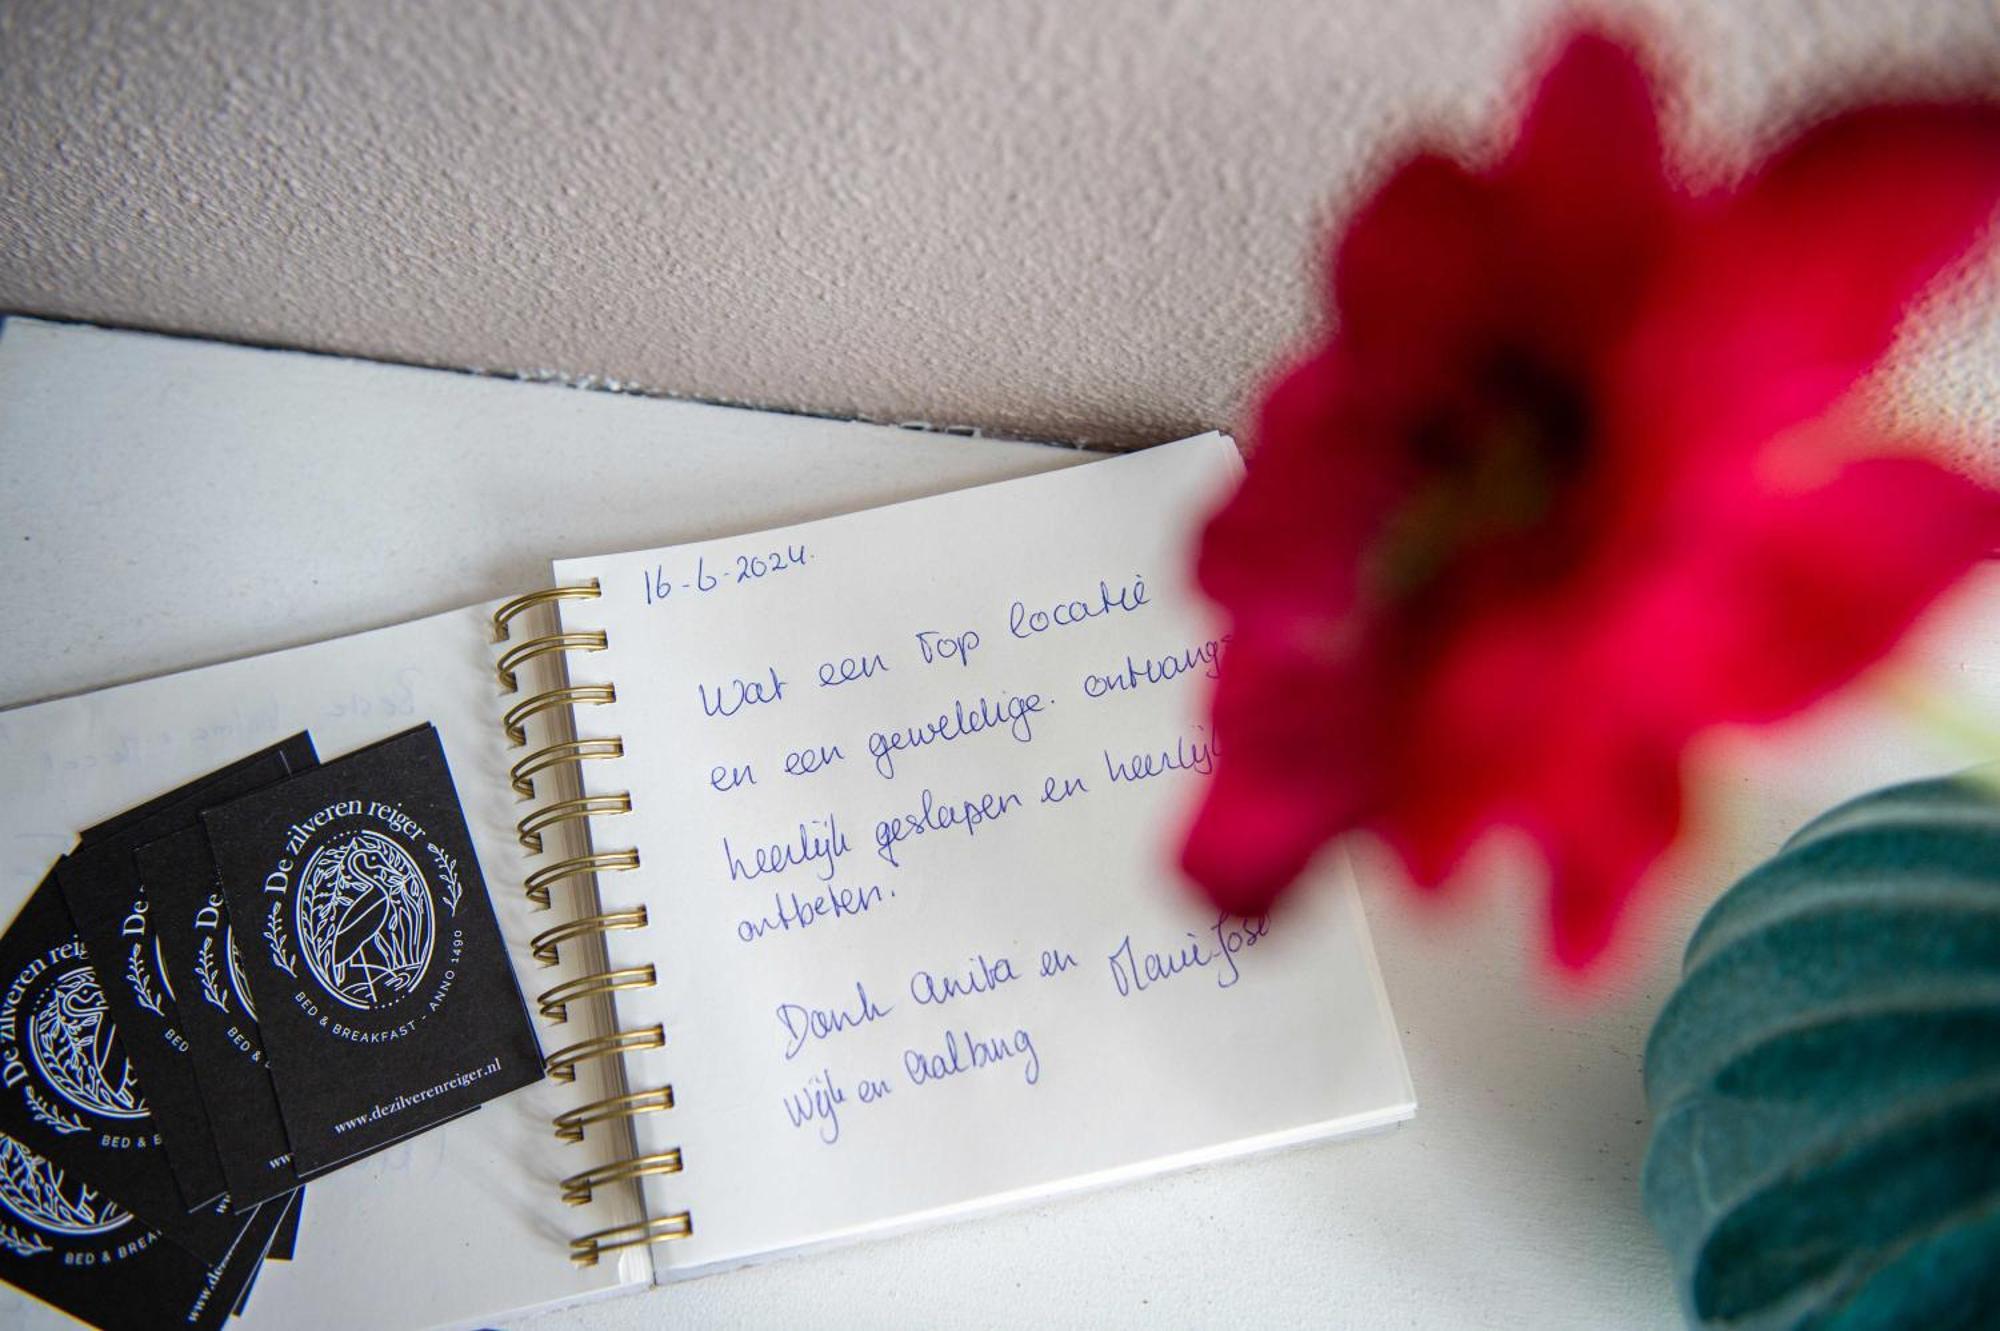 16-6-2024.
Wat een Top locatie
en een geweldige. ontvangs
heerlijk geslapen en heerlijk
ontbeten.
Dank Anita en Marie-José
Wijk en Aalburg
De zilveren reiger
BED & BREAKFAST - ANNO 1490
www.dezilverenreiger.nl
De
BED &
De
BED
De zilveren reig
BED & B
BED & BREA